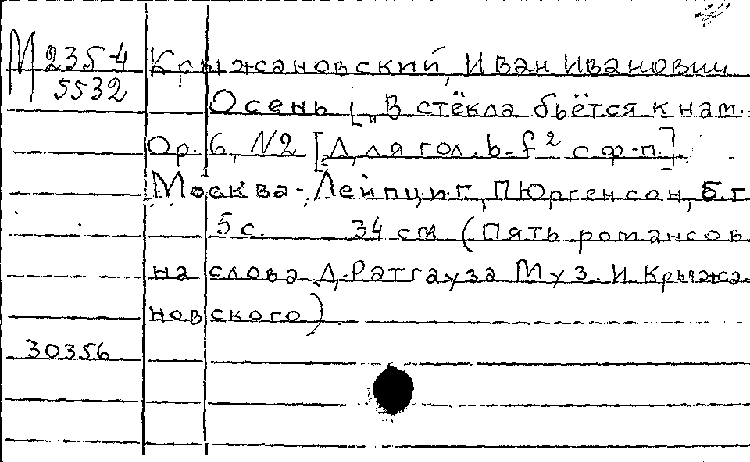 М 2354
5532
Крыжановский, Иван Иванович
Осень [„В стёкла бьётся к нам.
Op. 6, N2 [Для гол. b-f² с ф-п.]
Москва-Лейпциг, П.Юргенсон, б.г.
5 с. 34 см (Пять романсов
на слова Д. Ратгауза Муз. И Крыжа-
новского)
30356